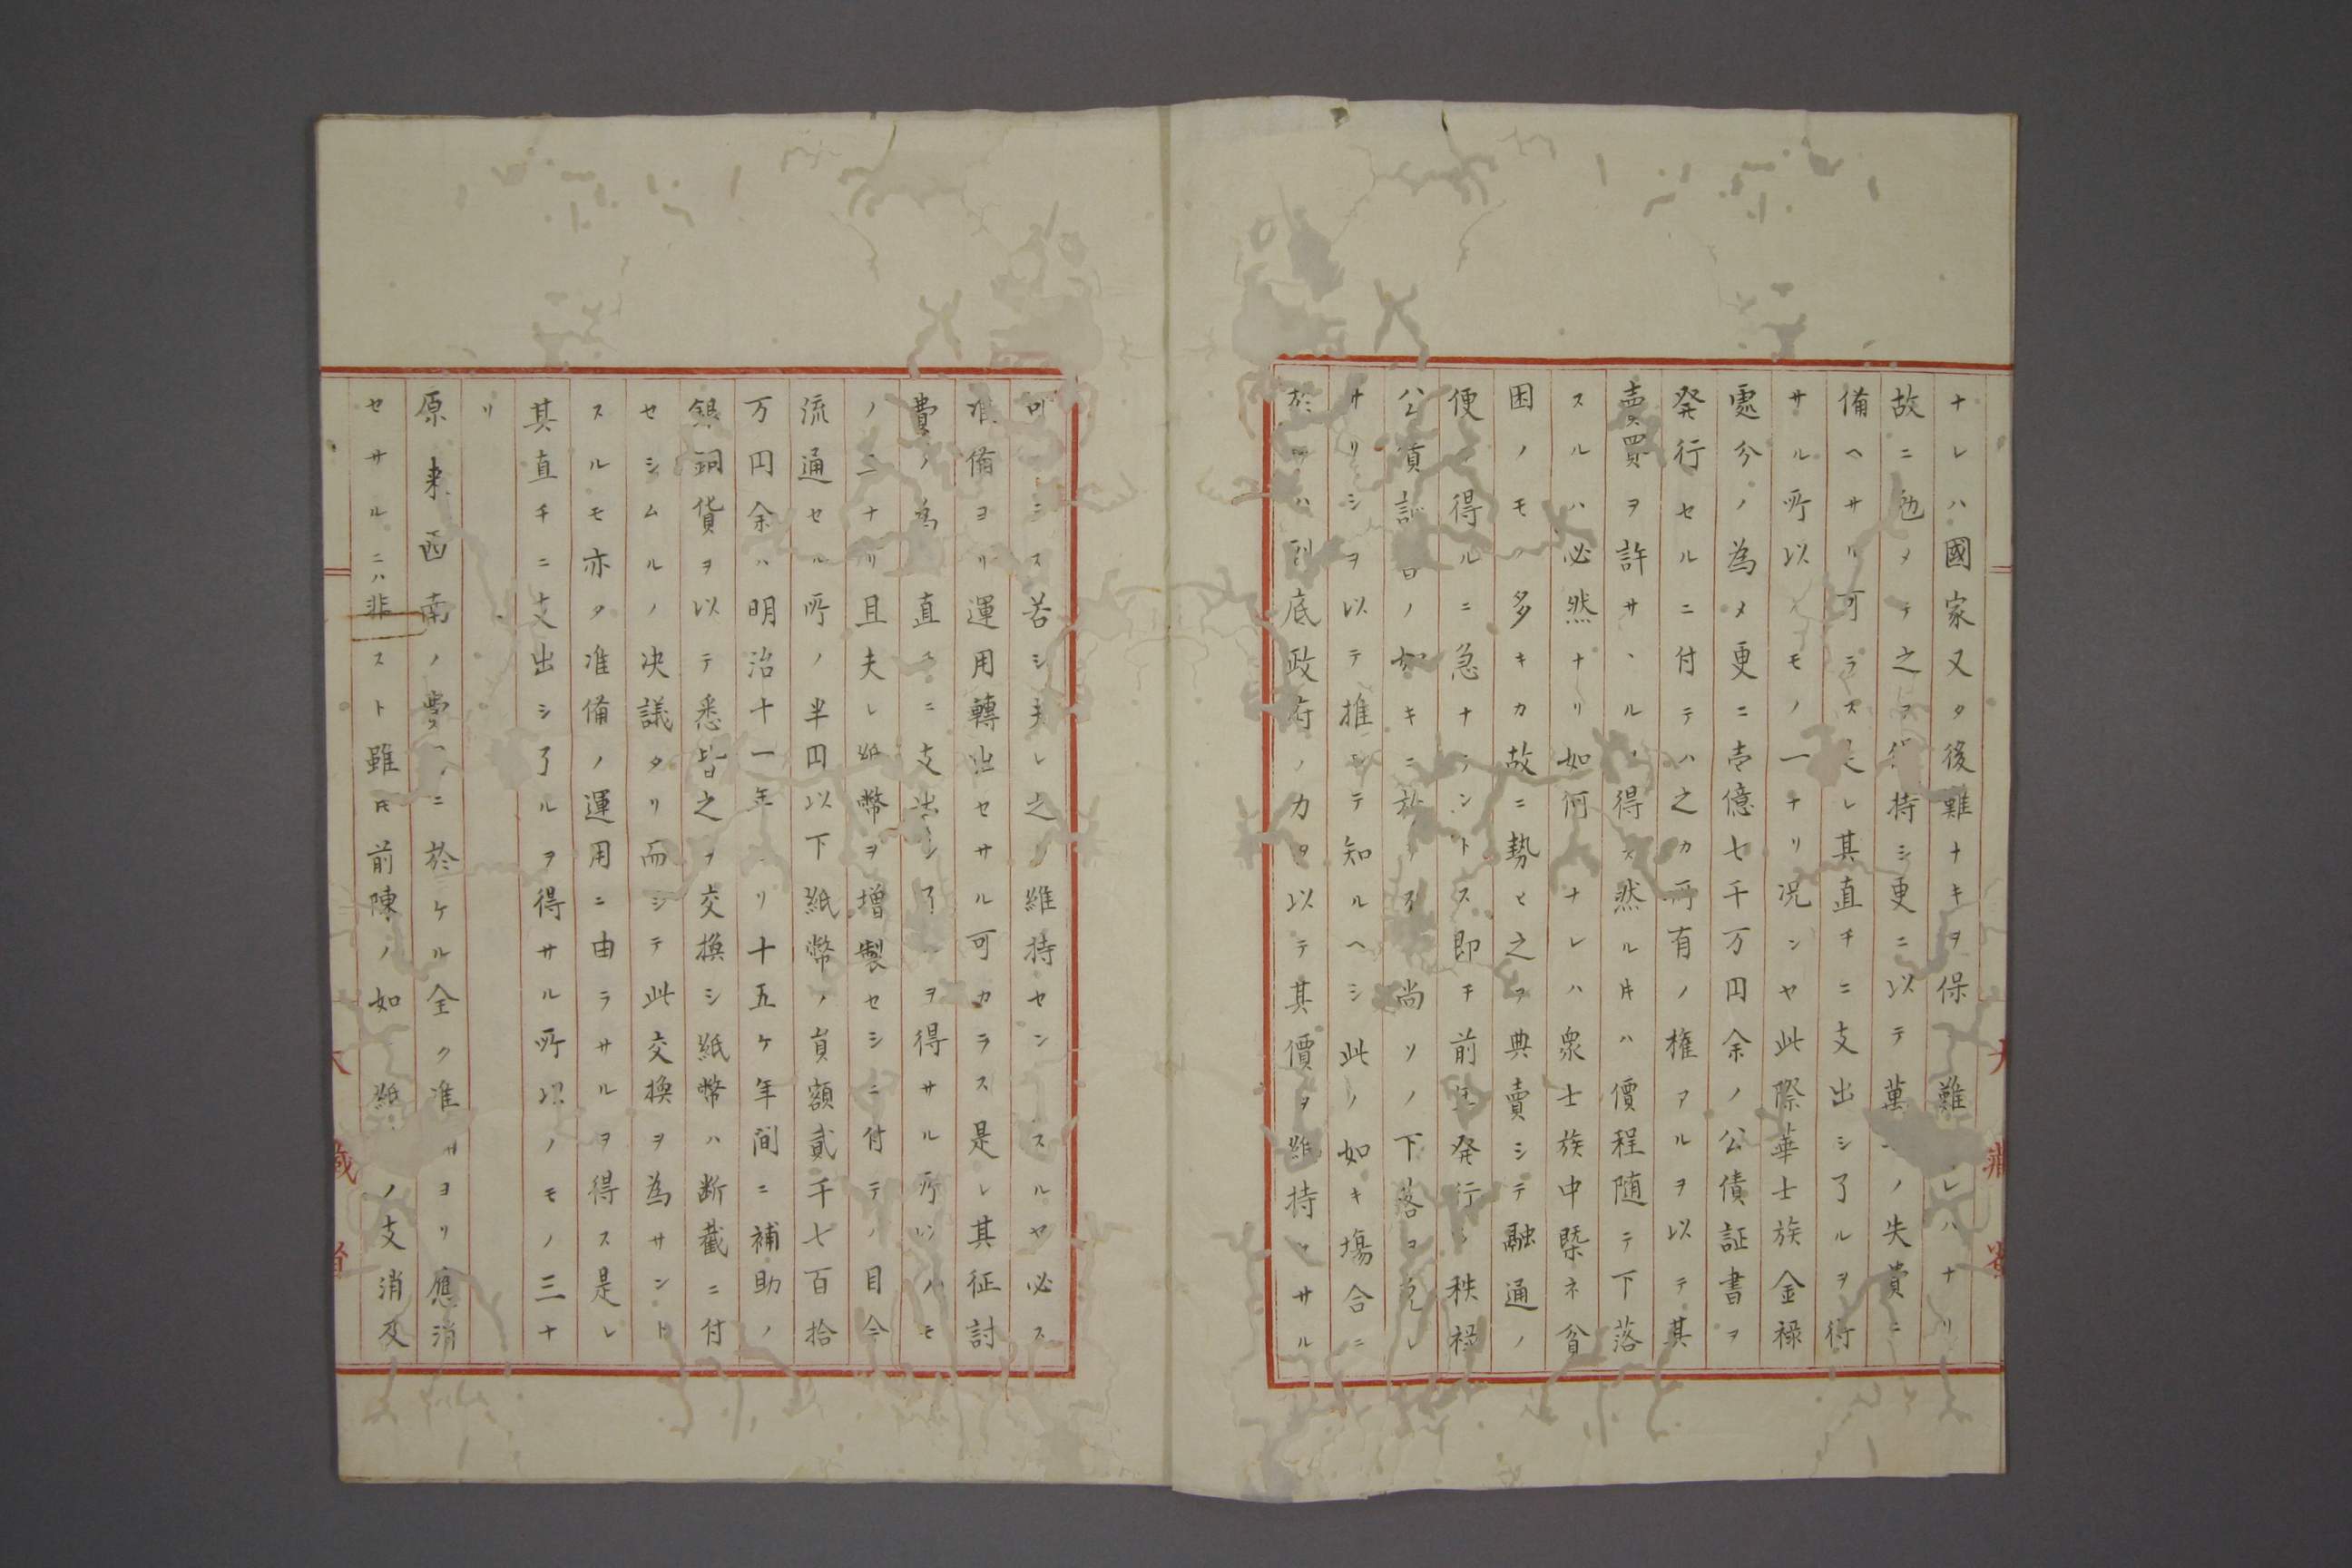 ナレハ國家又タ後難ナキヲ保難レハナリ
故ニ勉メテ之ヲ持シ更ニ以テ萬一ノ失費ニ
備ヘサル可ラス是レ其直チニ支出シ了ルヲ得
サル所以ノモノ一ナリ况ンヤ此際華士族金祿
處分ノ為メ更ニ壱億七千万円余ノ公債証書ヲ
発行セルニ付テハ之カ所有ノ権アルヲ以テ其
賣買ヲ許サヽルヲ得ス然ル片ハ價程随テ下落
スルハ必然ナリ如何ナレハ衆士族中槩ネ貧
困ノモノ多キカ故ニ勢ヒ之ヲ典賣シテ融通ノ
便ヲ得ルニ急ナランドス即チ前年発行ノ秩祿
公債証書ノ如キニ於テスラ尚ソノ下落ヲ免レ
サリシヲ以テ推シテ知ルヘシ此ノ如キ塲合ニ
於テハ到底政府ノ力ヲ以テ其價ヲ維持セサル
可ラス若シ夫レ之ヲ維持センスルヤ必ス
准備ヨリ運用轉出セサル可カラス是レ其征討
費ノ為メ直チニ支出シ了ルヲ得サル所以ノモ
ノ二ナリ且夫レ紙幣ヲ增製セシニ付テノ目今
流通セル所ノ半円以下紙幣ノ員額貳千七百拾
万円余ハ明治十一年ヨリ十五ケ年间ニ補助ノ
銀銅貨ヲ以テ悉皆之ヲ交換シ紙幣ハ断截ニ付
セシムルノ决議タリ而シテ此交換ヲ為サント
スルモ亦タ准備ノ運用ニ由ラサルヲ得ス是レ
其直チニ支出シ了ルヲ得サル所以ノモノ三ナ
リ
原来西南ノ費ニ於ケル全ク准ヨリ應消
セサルニハ非スト雖片前陳ノ如紙ノ支消及
大藏省
大藏省